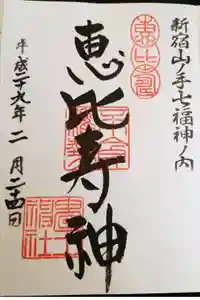 新宿山ノ手七福神ノ内
恵比寿
恵比寿神
平成二十九年二月二十四日